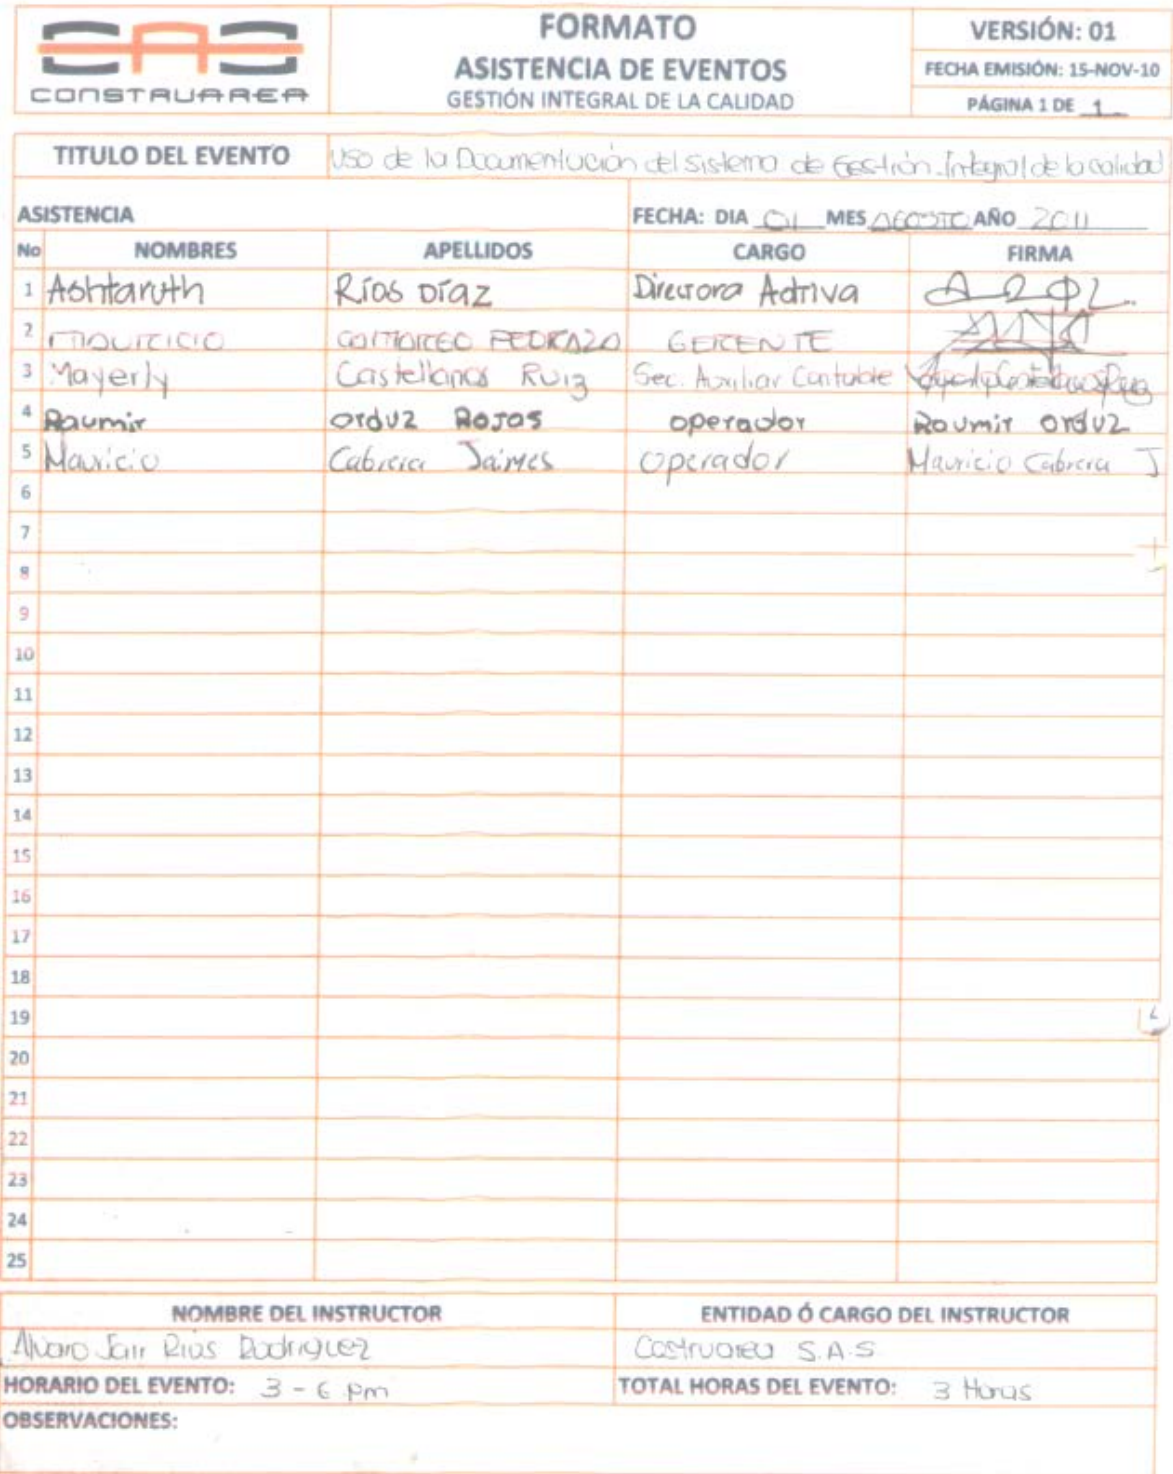 CONSTRUAREA
FORMATO
ASISTENCIA DE EVENTOS
GESTIÓN INTEGRAL DE LA CALIDAD
VERSIÓN: 01
FECHA EMISIÓN: 15-NOV-10
PÁGINA 1 DE 1
TITULO DEL EVENTO Uso de la Documentación del sistema de Gestión Integral de la calidad
ASISTENCIA FECHA: DIA 01 MES AGOSTO AÑO 2011
No NOMBRES APELLIDOS CARGO FIRMA
1 Ashtaruth Ríos Díaz Directora Adtiva
2 Mauricio Camargo PEDRAZA GERENTE
3 Mayerly Castellanos Ruiz Sec. Auxiliar Contable
4 Raumir Orduz Rojas operador Raumir Orduz
5 Mauricio Cabrera Jaimes Operador Mauricio Cabrera J
6
7
8
9
10
11
12
13
14
15
16
17
18
19
20
21
22
23
24
25
NOMBRE DEL INSTRUCTOR ENTIDAD Ó CARGO DEL INSTRUCTOR
Alvaro Jair Rios Rodriguez Costruarea S.A.S
HORARIO DEL EVENTO: 3 - 6 pm TOTAL HORAS DEL EVENTO: 3 Horas
OBSERVACIONES: